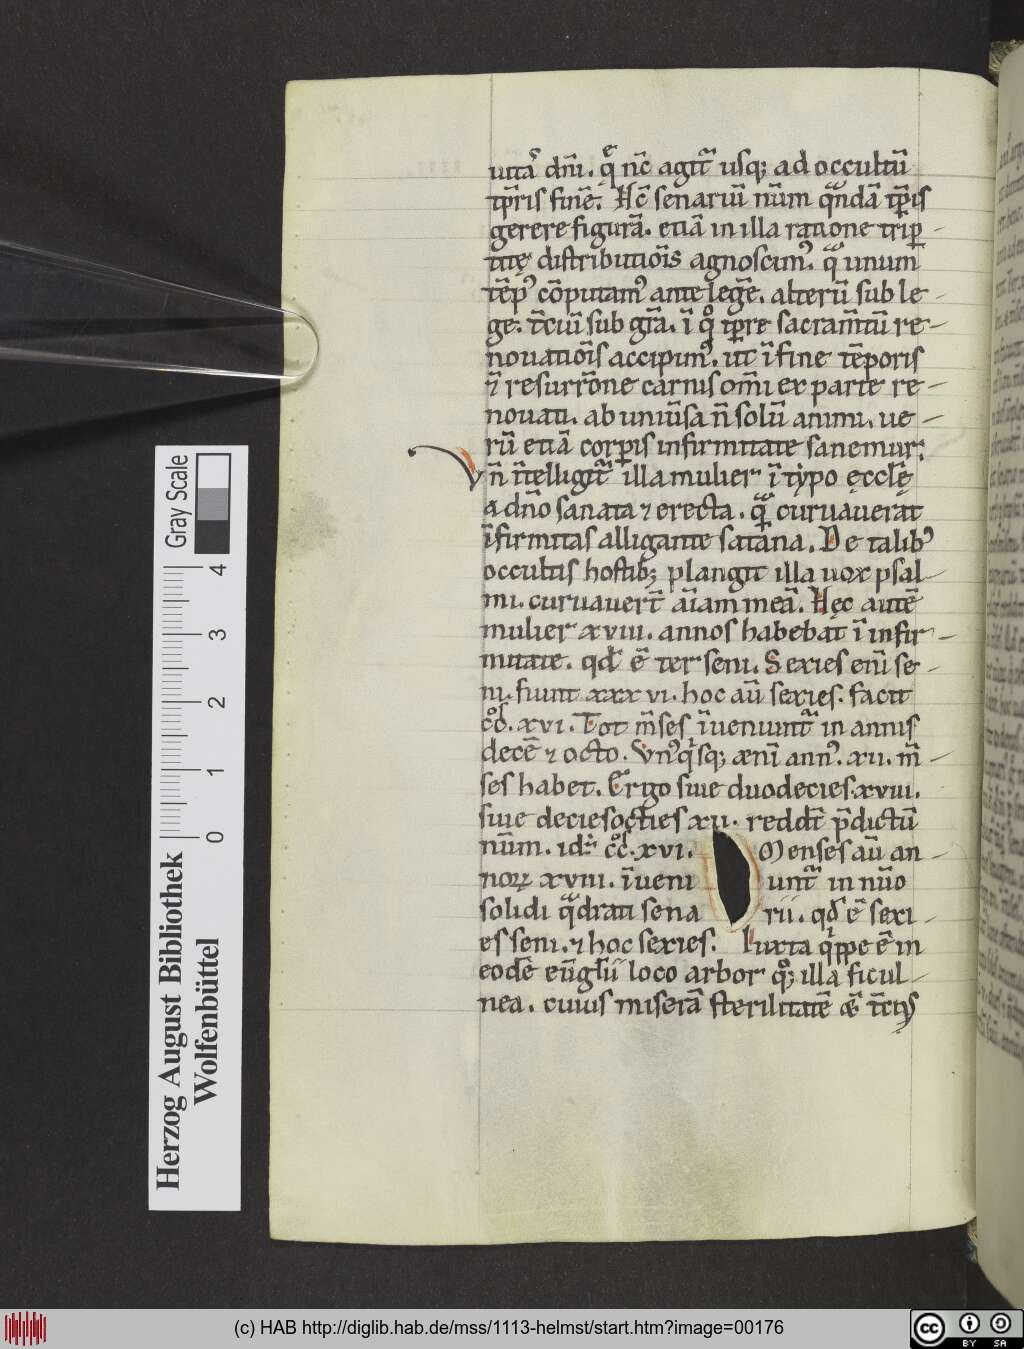 uitā dn̄i. q̄ nc̄ agit̄ usq; ad occultū
tp̄ris finē. Hc̄ senariū nūm q̄ndā tp̄is
gerere figurā. etiā in illa ratione trip-
titę distributiōis agnoscim᷒. q̄ unum
tēp᷒ cōputam᷒ ante legē. alterū sub le-
ge. tc̄iū sub gr̄a. ī qͦ tp̄re sacram̄tū re-
nouatiōis accipim᷒. ut ī fine tēporis
ī resurrōne carnis om̄i ex parte re-
nouati. ab uniūsa n̄ solū animi. ue-
rū etiā corp̄is infirmitate sanemur;
Vn̄ īt̄elligit̄ illa mulier ī tẏpo ęcclę̄
a dn̄o sanata ⁊ erecta. q̄ curuauerat
īfirmitas alligante satana. De talib᷒
occultis hostib; plangit illa uox psal-
mi. curuauert̄ aīam meā. Hęc autē
mulier xviii. annos habebat ī infir-
mitate. qd̄ ē ter seni. Sexies enī se-
ni. fiunt xxx vi. hoc aū sexies. facit
ccͦͦ. xvi. Tot m̄ses īueniunt̄ in annis
decē ⁊ octo. Vn᷒qͥsq; ænī ann᷒. xii. m̄-
ses habet. Ergo siue duodecies xviii.
siue decies octies xii. reddit̄ p̄dictū
nūm. id: ccͦͦ. xvi. Menses aū an-
noꝝ xviii. īueni unt̄ in nūo
solidi q̄drati sena rii. qd̄ ē sexi-
es seni. ⁊ hoc sexies. Iuxta qͥppe ē in
eodē eūglii loco arbor qͦ; illa ficul-
nea. cuius miserā sterilitatē
Gray Scale
0 1 2 3 4
Herzog August Bibliothek
Wolfenbüttel
(c) HAB http://diglib.hab.de/mss/1113-helmst/start.htm?image=00176
cc BY SA